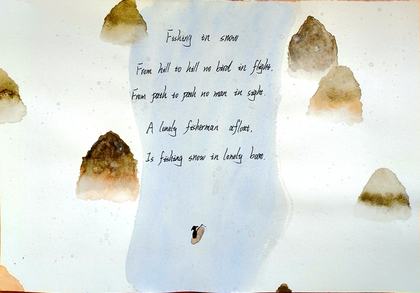 Fishing in snow
From hill to hill no bird in flight.
From path to path no man in sight.
A lonely fisherman afloat.
Is fishing snow in lonely boat.